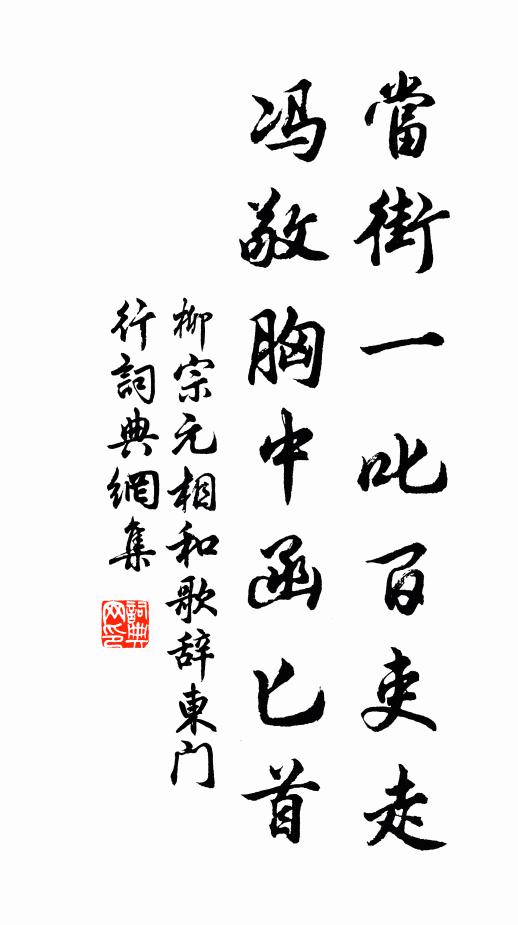 當街一叱百吏走
冯敬胸中函匕首
柳宗元相和歌辞東门
行詞典網集
詞典网印